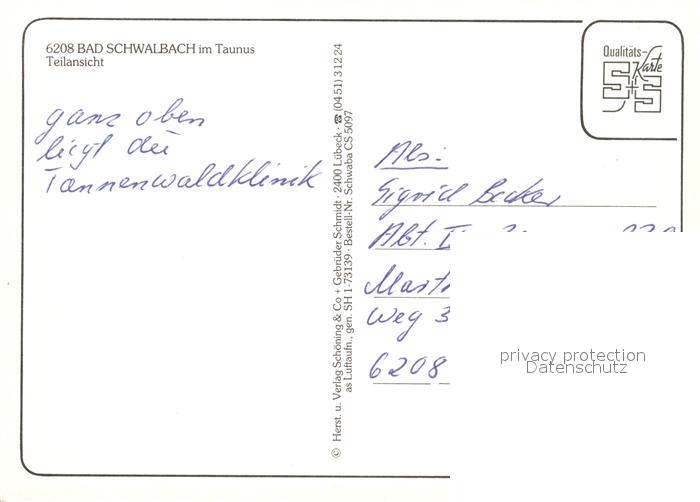 6208 BAD SCHWALBACH im Taunus
Teilansicht
Qualitäts-
Karte
S+S
ganz oben
liegt die
Tannenwaldklinik
© Herst. u. Verlag Schöning & Co + Gebrüder Schmidt · 2400 Lübeck · ☎ (04 51) 3 12 24
as Luftaufn., gen. SH 1-73139 · Bestell-Nr. Schwaba CS 5097
Abs:
Sigrid Becker
Abt. I
Weg 3
6208
privacy protection
Datenschutz